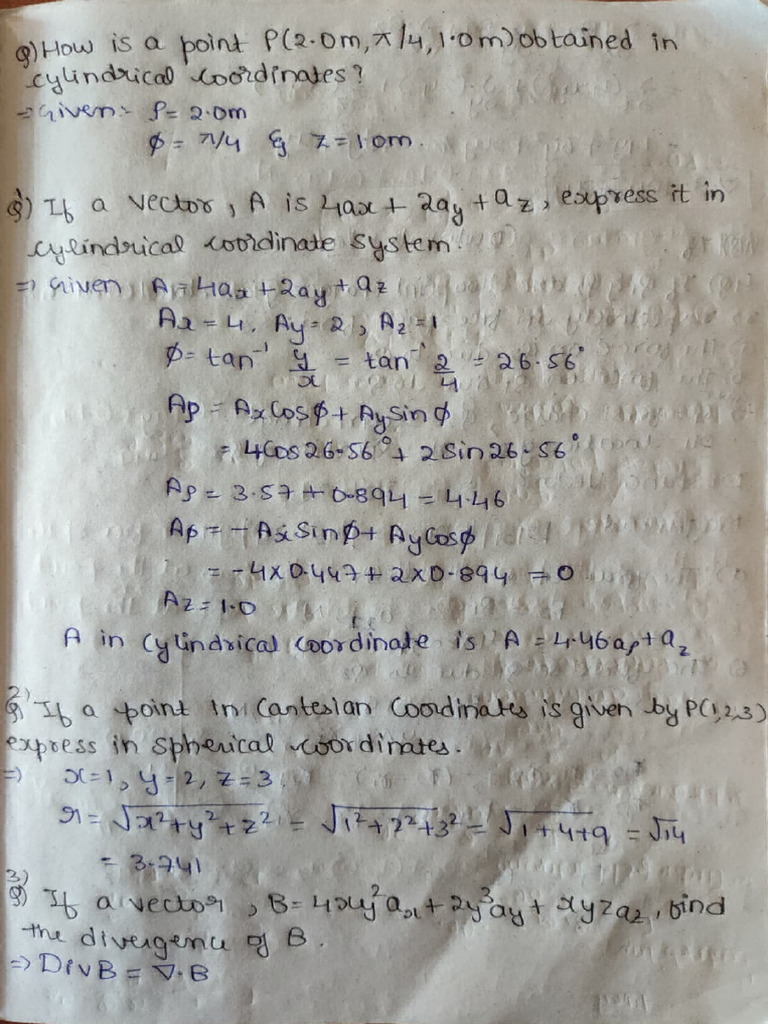 Q) How is a point P(2.0m, π/4, 1.0m) obtained in
cylindrical coordinates?
⇒ Given:- ρ = 2.0m
ϕ = π/4 & z = 1.0m.
Q) If a vector, A is 4ax + 2ay + az, express it in
cylindrical coordinate system.
⇒ Given A = 4ax + 2ay + az
Ax = 4, Ay = 2, Az = 1
ϕ = tan⁻¹ y/x = tan⁻¹ 2/4 = 26.56°
Aρ = Ax Cosϕ + Ay sinϕ
= 4Cos 26.56° + 2 Sin 26.56°
Aρ = 3.57 + 0.894 = 4.46
Aϕ = - Ax Sinϕ + Ay Cosϕ
= -4 x 0.447 + 2 x 0.894 = 0
Az = 1.0
A in Cylindrical coordinate is A = 4.46aρ + az
2)
Q) If a point in Cartesian Coordinates is given by P(1,2,3)
express in spherical coordinates.
⇒ x=1, y=2, z=3
r = √x²+y²+z² = √1²+2²+3² = √1+4+9 = √14
= 3.741
3)
Q) If a vector, B = 4xy²ax + 2y³ay + xyzaz, find
the divergence of B.
⇒ Div B = ∇·B